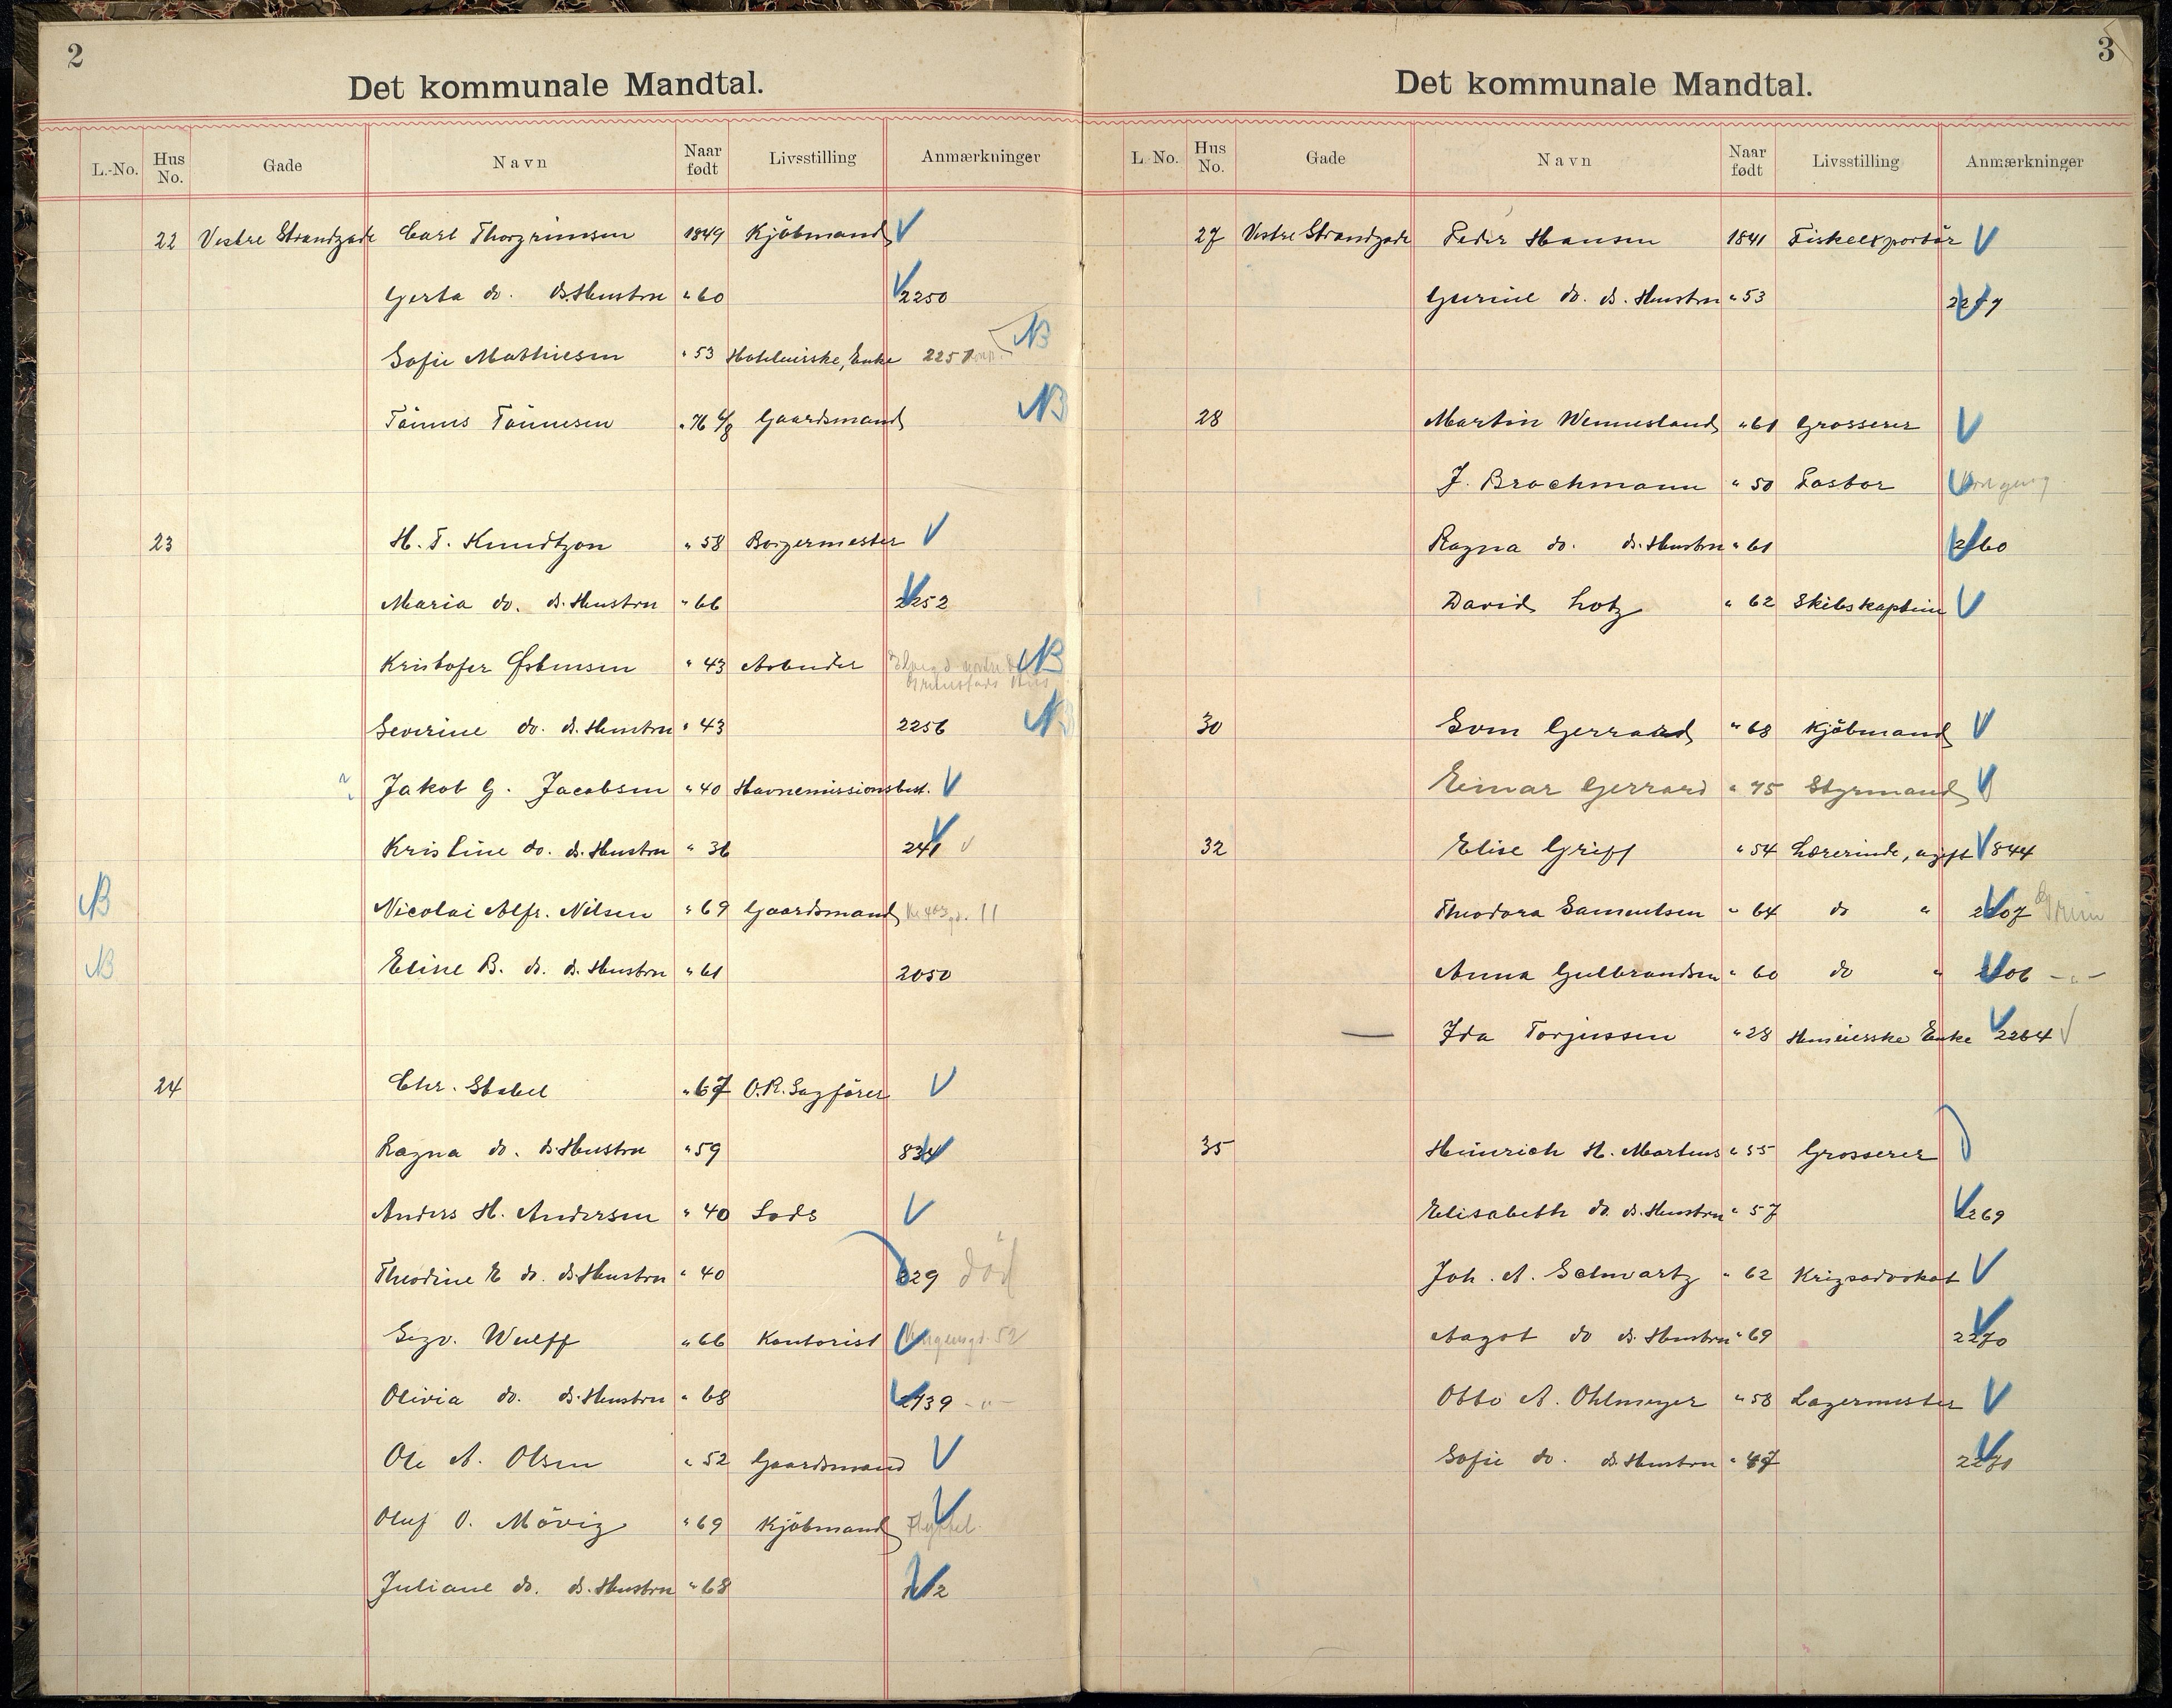 2
Det kommunale Mandtal.
L.-No. Hus No. Gade Navn Naar født Livsstilling Anmærkninger
22 Vestre Strandgade Carl Thorgrimsen 1849 Kjöbmand V
Gerta do. ds. Hustru " 60 V 2250
Sofie Mathiesen " 53 Hotelvirske, Enke 2251 NB
Tönnes Tönnesen " 76 4/8 Gaardsmand NB
23 H. T. Knudtzon " 58 Borgermester V
Maria do. ds. Hustru " 66 V 2252
Kristofer Östensen " 43 Arbeider NB
Severine do. ds. Hustru " 43 2256 NB
Jakob G. Jacobsen " 40 Havnemissionsbest. V
Kristine do. ds. Hustru " 36 241 V
NB Nicolai Alfr. Nilsen " 69 Gaardsmand 11
NB Eline B. do. ds. Hustru " 61 2050
24 Chr. Stabel " 67 O.R. Sagförer V
Ragna do. ds. Hustru " 59 834 V
Anders H. Andersen " 40 Lods V
Theodine E do. ds. Hustru " 40 829 död
Sigv. Wulff " 66 Kontorist V Kongensgd. 52
Olivia do. ds. Hustru " 68 V 2139 - " -
Ole A. Olsen " 52 Gaardsmand V
Oluf O. Mövig " 69 Kjöbmand V Flyttet
Juliane do. ds. Hustru " 68 V
3
Det kommunale Mandtal.
L. No. Hus No. Gade Navn Naar født Livsstilling Anmærkninger
27 Vestre Strandgade Peder Hansen 1841 Fiskeexportör V
Gurine do. ds. Hustru " 53 V
28 Martin Wennesland " 61 Grosserer V
J. Brochmann " 50 Pastor V
Ragna do. ds. Hustru " 61 V 2260
David Lotz " 62 Skibskaptein V
30 Sven Gerrard " 68 Kjöbmand V
Einar Gerrard " 75 Styrmand V
32 Elise Griff " 54 Lærerinde, ugift V 844
Theodora Samuelsen " 64 do " V 2207 Grim
Anna Gulbrandsen " 60 do " V - " -
— Ida Torjussen " 28 Huseierske Enke V 2264 V
35 Heinrich H. Martens " 55 Grosserer
Elisabeth do. ds. Hustru " 57 V 2269
Joh. A. Schwartz " 62 Krigsadvokat V
Aagot do ds. Hustru " 69 V 2270
Otto A. Ohlmeyer " 58 Lagermester V
Sofie do. ds. Hustru " 67 V 2271